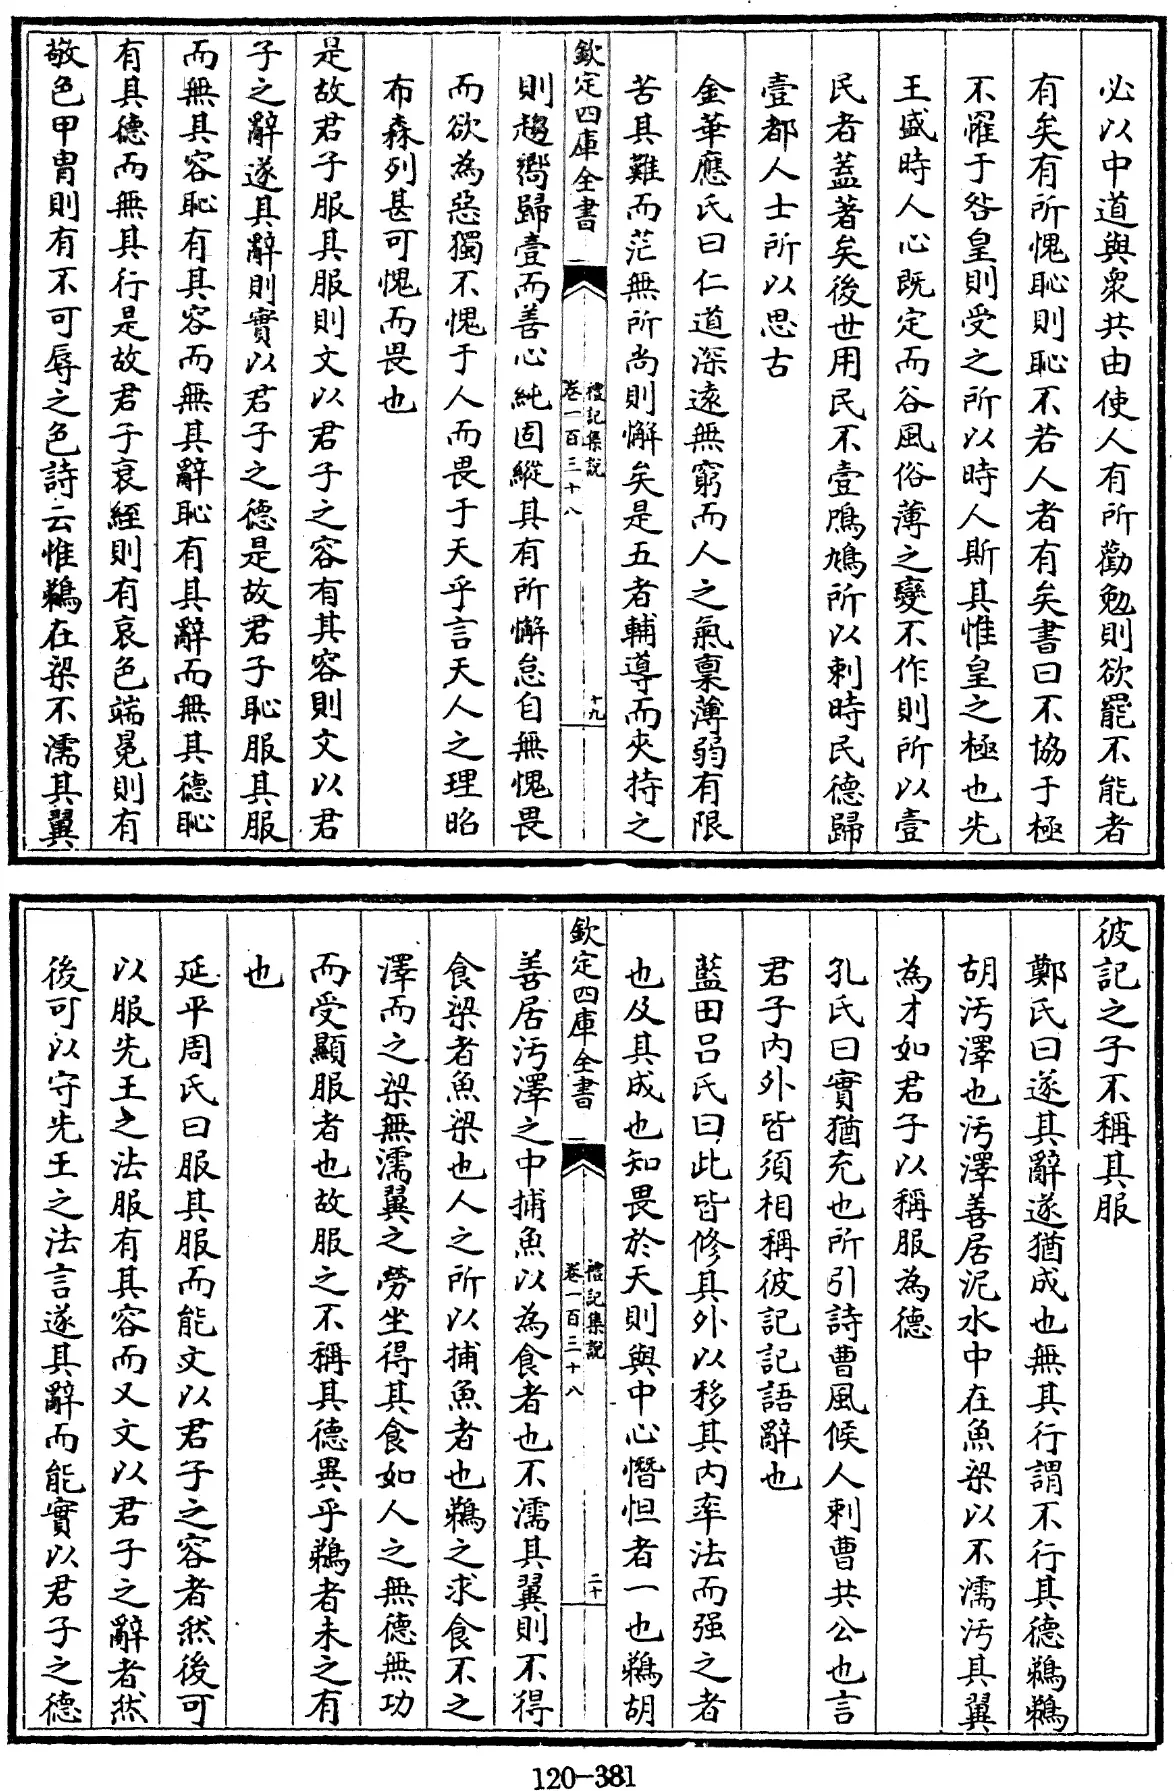 必以中道與衆共由使人有所勸勉則欲罷不能者
有矣有所愧恥則恥不若人者有矣書曰不協于極
不罹于咎皇則受之所以時人斯其惟皇之極也先
王盛時人心既定而谷風俗薄之變不作則所以壹
民者蓋著矣後世用民不壹鳲鳩所以刺時民德歸
壹都人士所以思古
金華應氏曰仁道深遠無窮而人之氣稟薄弱有限
苦其難而茫無所尚則懈矣是五者輔導而夾持之
欽定四庫全書
禮記集說
卷一百三十八
十九
則趨嚮歸壹而善心純固縱其有所懈怠自無愧畏
而欲為惡獨不愧于人而畏于天乎言天人之理昭
布森列甚可愧而畏也
是故君子服其服則文以君子之容有其容則文以君
子之辭遂其辭則實以君子之德是故君子恥服其服
而無其容恥有其容而無其辭恥有其辭而無其德恥
有其德而無其行是故君子衰絰則有哀色端冕則有
敬色甲冑則有不可辱之色詩云惟鵜在梁不濡其翼
彼記之子不稱其服
鄭氏曰遂其辭遂猶成也無其行謂不行其德鵜鵜
胡汚澤也汚澤善居泥水中在魚梁以不濡汚其翼
為才如君子以稱服為德
孔氏曰實猶充也所引詩曹風候人刺曹共公也言
君子內外皆須相稱彼記記語辭也
藍田呂氏曰此皆修其外以移其內率法而强之者
也及其成也知畏於天則與中心憯怛者一也鵜胡
欽定四庫全書
禮記集說
卷一百三十八
二十
善居汚澤之中捕魚以為食者也不濡其翼則不得
食梁者魚梁也人之所以捕魚者也鵜之求食不之
澤而之梁無濡翼之勞坐得其食如人之無德無功
而受顯服者也故服之不稱其德異乎鵜者未之有
也
延平周氏曰服其服而能文以君子之容者然後可
以服先王之法服有其容而又文以君子之辭者然
後可以守先王之法言遂其辭而能實以君子之德
120-381